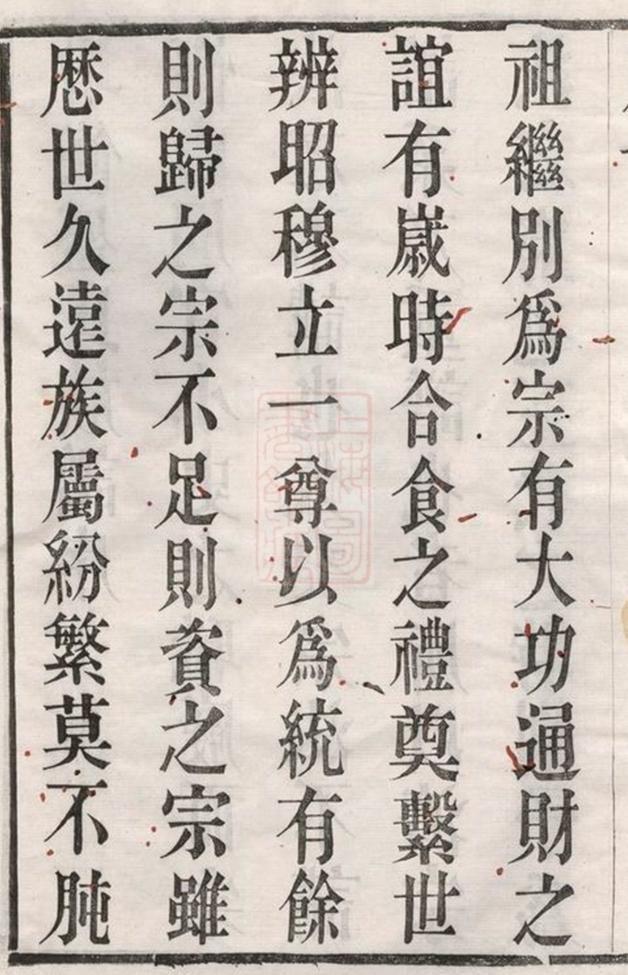 祖繼別爲宗有大功通財之
誼有嵗時合食之禮奠繫世
辨昭穆立一尊以爲統有餘
則歸之宗不足則資之宗雖
歴世久遠族屬紛繁莫不肫